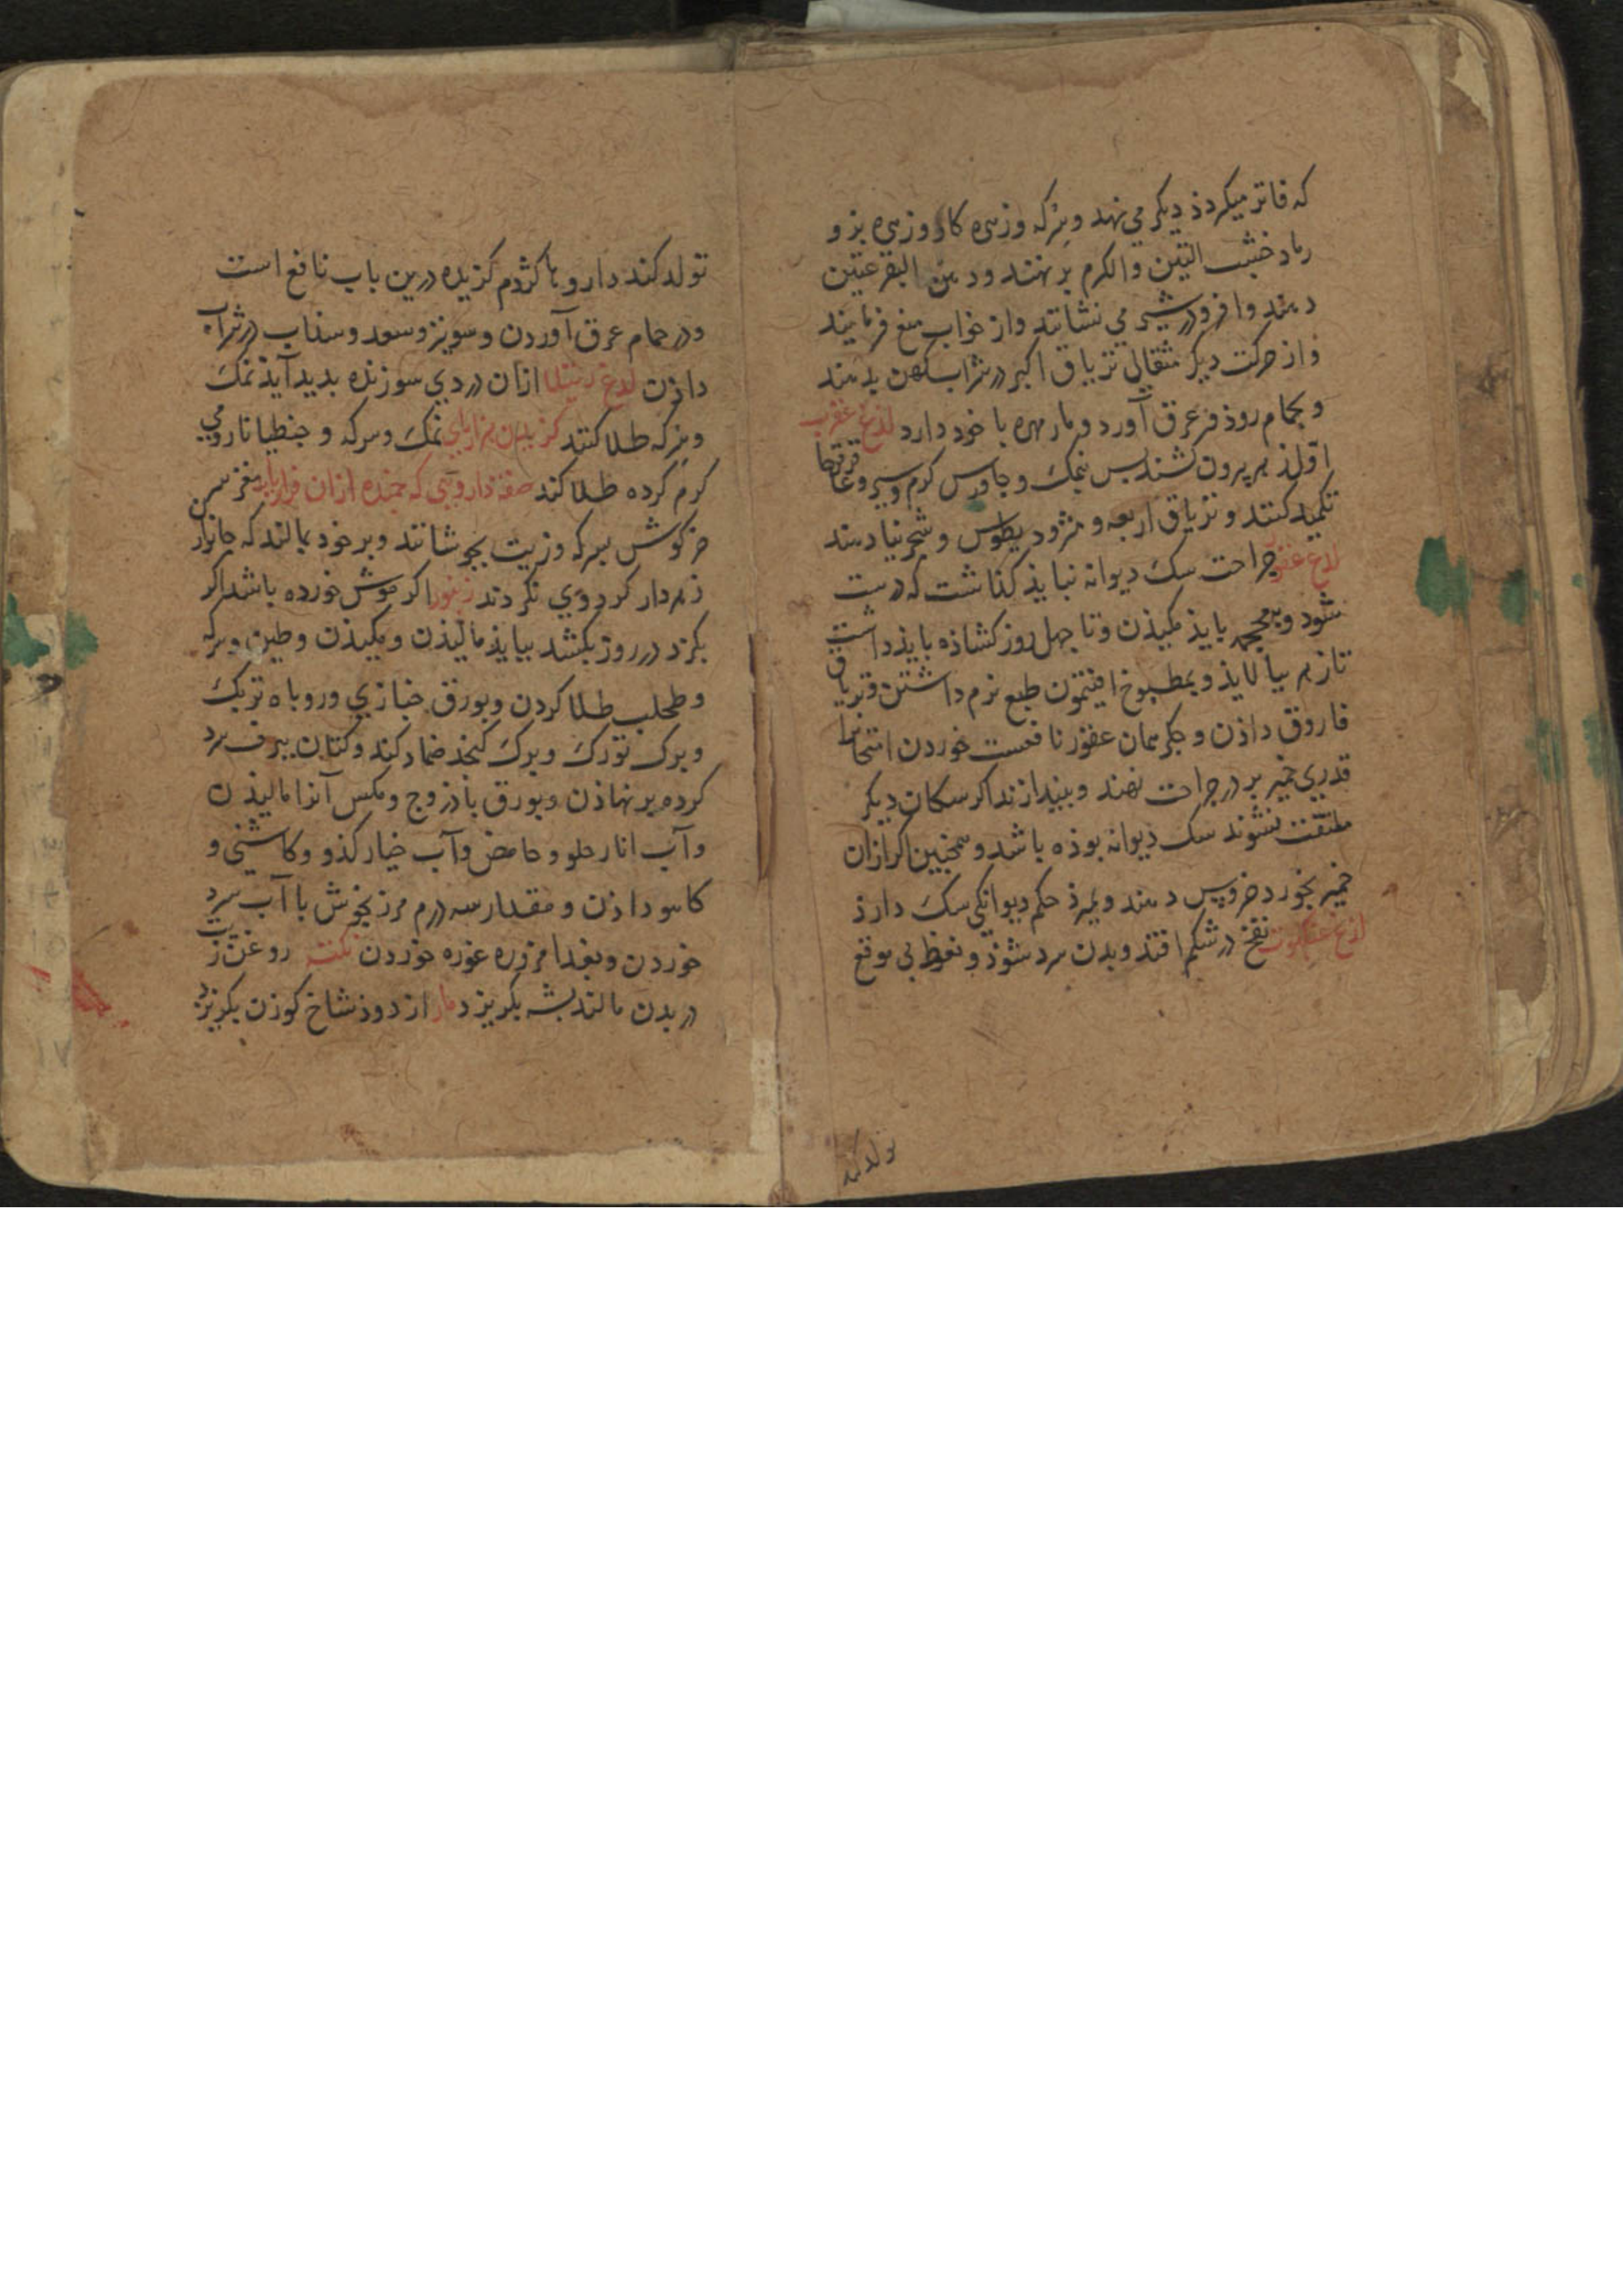 که فاتر میکردذ دیکر می نهد و بزکه وزهره کاو وزهره بز و
رماد خشب التین والکرم بر نهند ودهن البقر عتیق
دهند وا فرو در شیر می نشانند واز خواب منع فرمایند
واز حرکت دیکر مثقالی تریاق اکبر در شراب کهن بدهند
و بحمام روذ و عرق آورد و مار مهره با خود دارد لدغ عقرب
اول زهر بیرون کشند بس بنمک و جاورس کرم و سیر و عاقرقرحا
تکمید کنند و تریاق اربعه و مثرود یطوس و شجرینا دهند
لدغ جراحت سک دیوانه نبایذ کذاشت که درست
شود و بمحجمه بایذ مکیذن و تا چهل روز کشاذه بایذ داشت
تا زهر بیالایذ و بمطبوخ افتیمون طبع نرم داشتن و تریاق
فاروق داذن و جکر همان عقور نافعست خوردن امتحانرا
قدری خمیر بر در جراحت نهند و بیندازند اکر سکان دیکر
ملتفت نشوند سک دیوانه بوذه باشد و همچنین اکر ازان
خمیر بخورد خروس دهند و بمیرذ حکم دیوانکی سک دارذ
لدغ عنکبوت نفخ در شکم افتد و بدن سرد شوذ و نعوظ بی موقع
تولد کند
تولد کند داروها کژدم کزیده درین باب نافع است
و در حمام عرق آوردن و سونیز و سعد و سذاب در شراب
داذن لدغ رتیلا ازان دردی سوزنده بدید آیذ نمک
و بزکه طلا کنند کزیدن هزار پای نمک و سرکه و جنطیانا رومی
کرم کرده طلا کند صفة داروئی که جمنده ازان مغز سر
خرکوش بسرکه وزیت بجوشانند و بر خود بمالند که جانوار
زهردار کرد وی نکردند زنبور اکر موش خورده باشد اکر
بکزد در روز بکشد بیایذ مالیذن و مکیذن و طین و سرکه
و طحلب طلا کردن و بورق خبازی و روباه تربک
و برک تورک و برک کنجذ ضماد کند و کتان ببرف سرد
کرده بر نهاذن و بورق باذروج و مکس آنرا مالیذن
و آب انار حلو و حامض و آب خیار کذو و کاشنی و
کاهو داذن و مقدار سه درم مرزنجوش با آب سرد
خوردن و بغذا مزوره غوره خوردن نکته روغن زیت
در بدن مالند بشه بکریزد مار از دوذ شاخ کوزن بکریزد